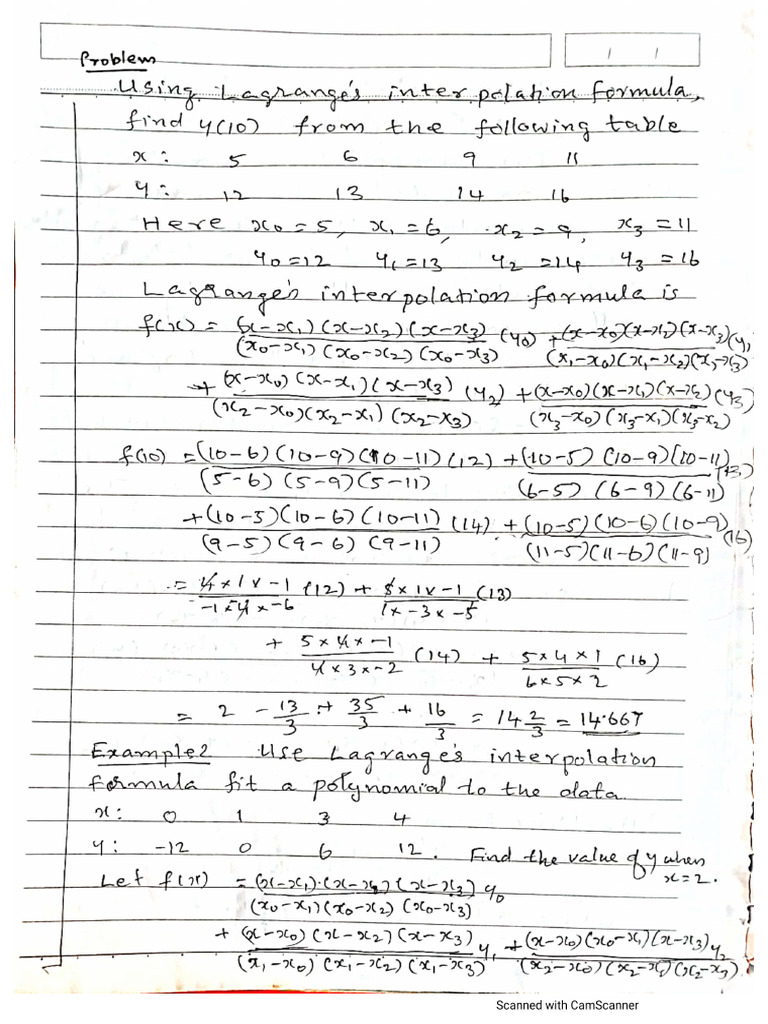 Problem
Using Lagrange's interpolation formula,
find y(10) from the following table
x: 5 6 9 11
y: 12 13 14 16
Here x0 = 5, x1 = 6, x2 = 9, x3 = 11
y0 = 12 y1 = 13 y2 = 14 y3 = 16
Lagrange's interpolation formula is
f(x) = (x-x1)(x-x2)(x-x3) (y0) + (x-x0)(x-x2)(x-x3) (y1
(x0-x1)(x0-x2)(x0-x3) (x1-x0)(x1-x2)(x1-x3)
+ (x-x0)(x-x1)(x-x3) (y2) + (x-x0)(x-x1)(x-x2) (y3)
(x2-x0)(x2-x1)(x2-x3) (x3-x0)(x3-x1)(x3-x2)
f(10) = (10-6)(10-9)(10-11) (12) + (10-5)(10-9)(10-11) (13)
(5-6)(5-9)(5-11) (6-5)(6-9)(6-11)
+ (10-5)(10-6)(10-11) (14) + (10-5)(10-6)(10-9) (16)
(9-5)(9-6)(9-11) (11-5)(11-6)(11-9)
= 4×1×-1 (12) + 5×1×-1 (13)
-1×-4×-6 1×-3×-5
+ 5×4×-1 (14) + 5×4×1 (16)
4×3×-2 6×5×2
= 2 - 13/3 + 35/3 + 16/3 = 14 2/3 = 14.667
Example 2 Use Lagrange's interpolation
formula fit a polynomial to the data
x: 0 1 3 4
y: -12 0 6 12. Find the value of y when
x=2.
Let f(x) = (x-x1)·(x-x2)(x-x3) y0
(x0-x1)(x0-x2)(x0-x3)
+ (x-x0)(x-x2)(x-x3) y1 + (x-x0)(x0-x1)(x-x3) y2
(x1-x0)(x1-x2)(x1-x3) (x2-x0)(x2-x1)(x2-x3)
Scanned with CamScanner